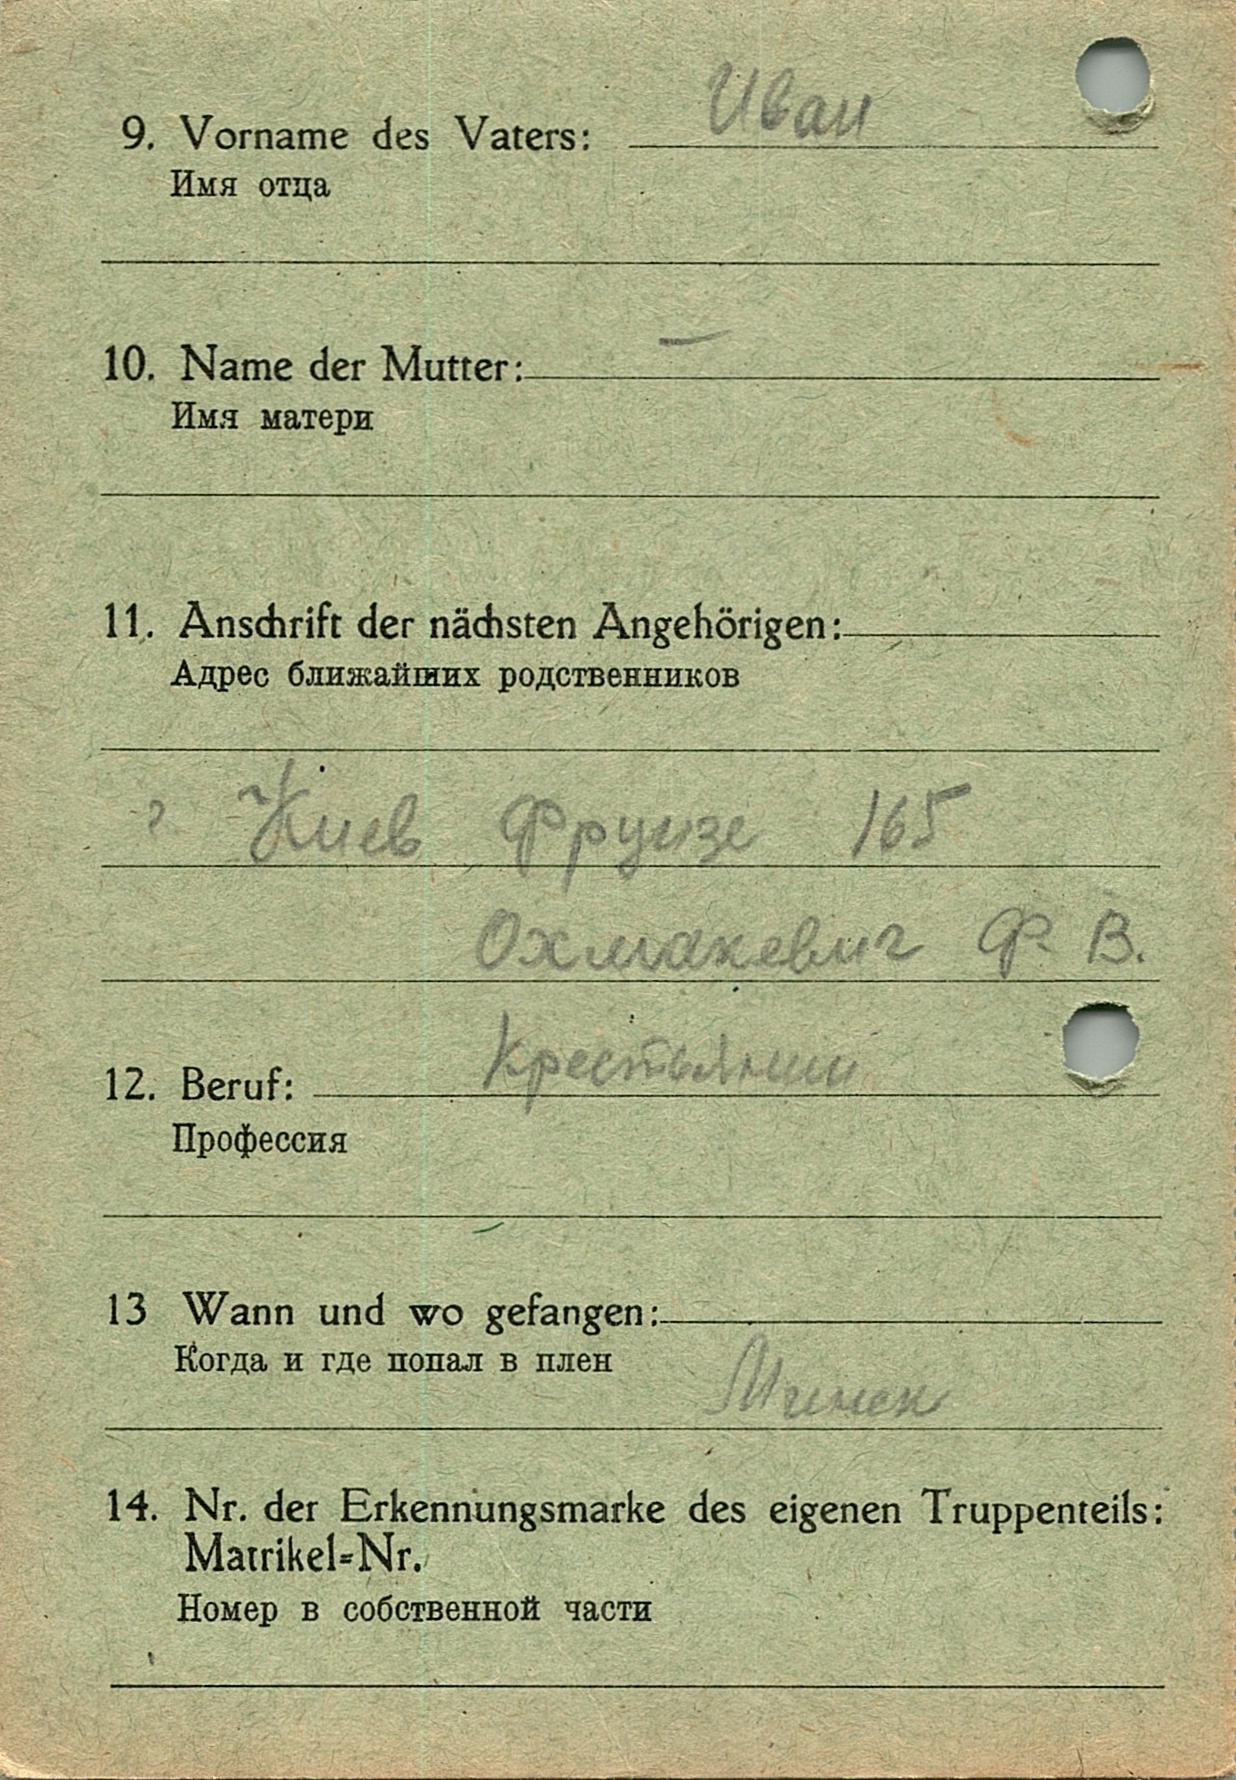 9. Vorname des Vaters: Иван
Имя отца
10. Name der Mutter: —
Имя матери
11. Anschrift der nächsten Angehörigen:
Адрес ближайших родственников
г Киев Фрунзе 165
Охмакевич Ф. В.
12. Beruf: Крестьянин
Профессия
13 Wann und wo gefangen:
Когда и где попал в плен
Минск
14. Nr. der Erkennungsmarke des eigenen Truppenteils:
Matrikel=Nr.
Номер в собственной части